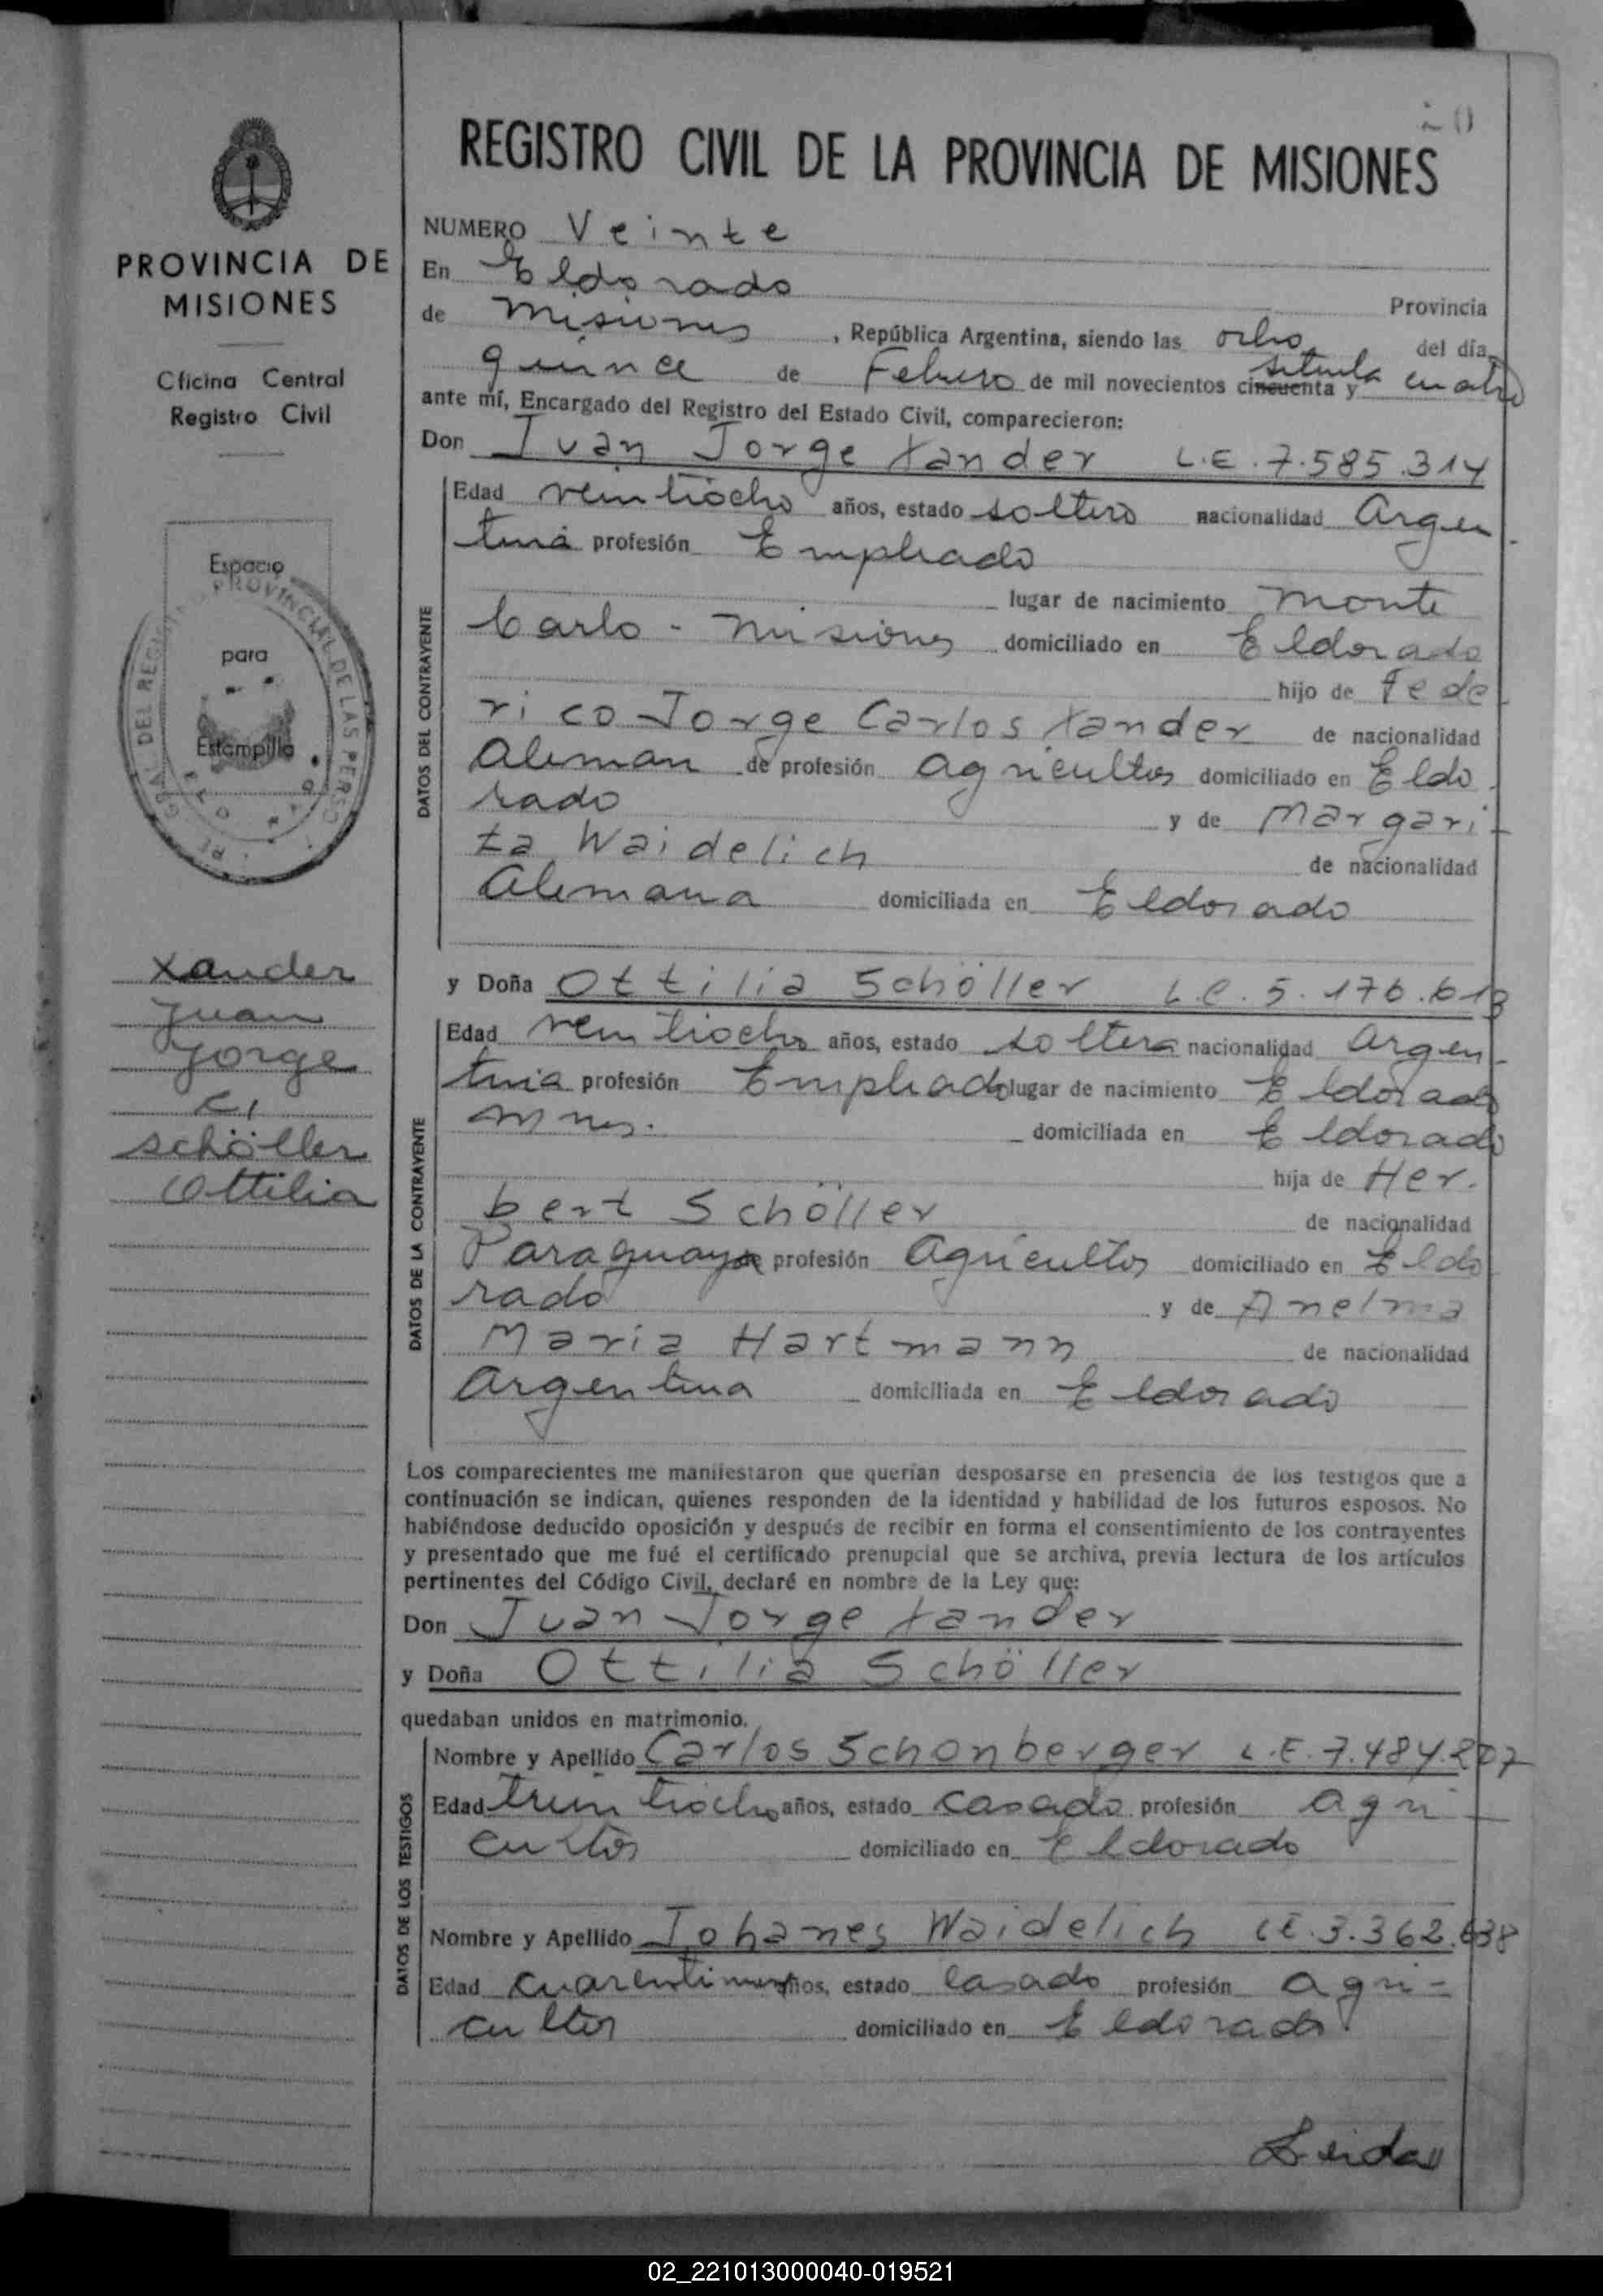 20
REGISTRO CIVIL DE LA PROVINCIA DE MISIONES
PROVINCIA DE
MISIONES
Oficina Central
Registro Civil
Espacio
para
Estampilla
Xander
Juan
Jorge
c/
Schöller
Ottilia
NUMERO Veinte
En Eldorado Provincia
de Misiones, República Argentina, siendo las ocho del día
quince de Febrero de mil novecientos cincuenta y setenta cuatro
ante mí, Encargado del Registro del Estado Civil, comparecieron:
Don Juan Jorge Xander L.E. 7.585.314
DATOS DEL CONTRAYENTE
Edad veintiocho años, estado soltero nacionalidad Argen
tina profesión Empleado
lugar de nacimiento Monte
Carlo - Misiones domiciliado en Eldorado
hijo de Fede
rico Jorge Carlos Xander de nacionalidad
Aleman de profesión Agricultor domiciliado en Eldo
rado y de Margari-
ta Waidelich de nacionalidad
Alemana domiciliada en Eldorado
y Doña Ottilia Schöller L.C. 5.176.613
DATOS DE LA CONTRAYENTE
Edad veintiocho años, estado soltera nacionalidad Argen-
tina profesión Empleado lugar de nacimiento Eldorado
Mnes. domiciliada en Eldorado
hija de Her-
bert Schöller de nacionalidad
Paraguaya de profesión Agricultor domiciliado en Eldo
rado y de Anelma
Maria Hartmann de nacionalidad
Argentina domiciliada en Eldorado
Los comparecientes me manifestaron que querían desposarse en presencia de los testigos que a
continuación se indican, quienes responden de la identidad y habilidad de los futuros esposos. No
habiéndose deducido oposición y después de recibir en forma el consentimiento de los contrayentes
y presentado que me fué el certificado prenupcial que se archiva, previa lectura de los artículos
pertinentes del Código Civil, declaré en nombre de la Ley que:
Don Juan Jorge Xander
y Doña Ottilia Schöller
quedaban unidos en matrimonio.
DATOS DE LOS TESTIGOS
Nombre y Apellido Carlos Schonberger L.E. 7.484.207
Edad treintiocho años, estado casado profesión agri-
cultor domiciliado en Eldorado
Nombre y Apellido Johanes Waidelich L.E. 3.362.638
Edad años, estado casado profesión agri-
cultor domiciliado en Eldorado
02_221013000040-019521